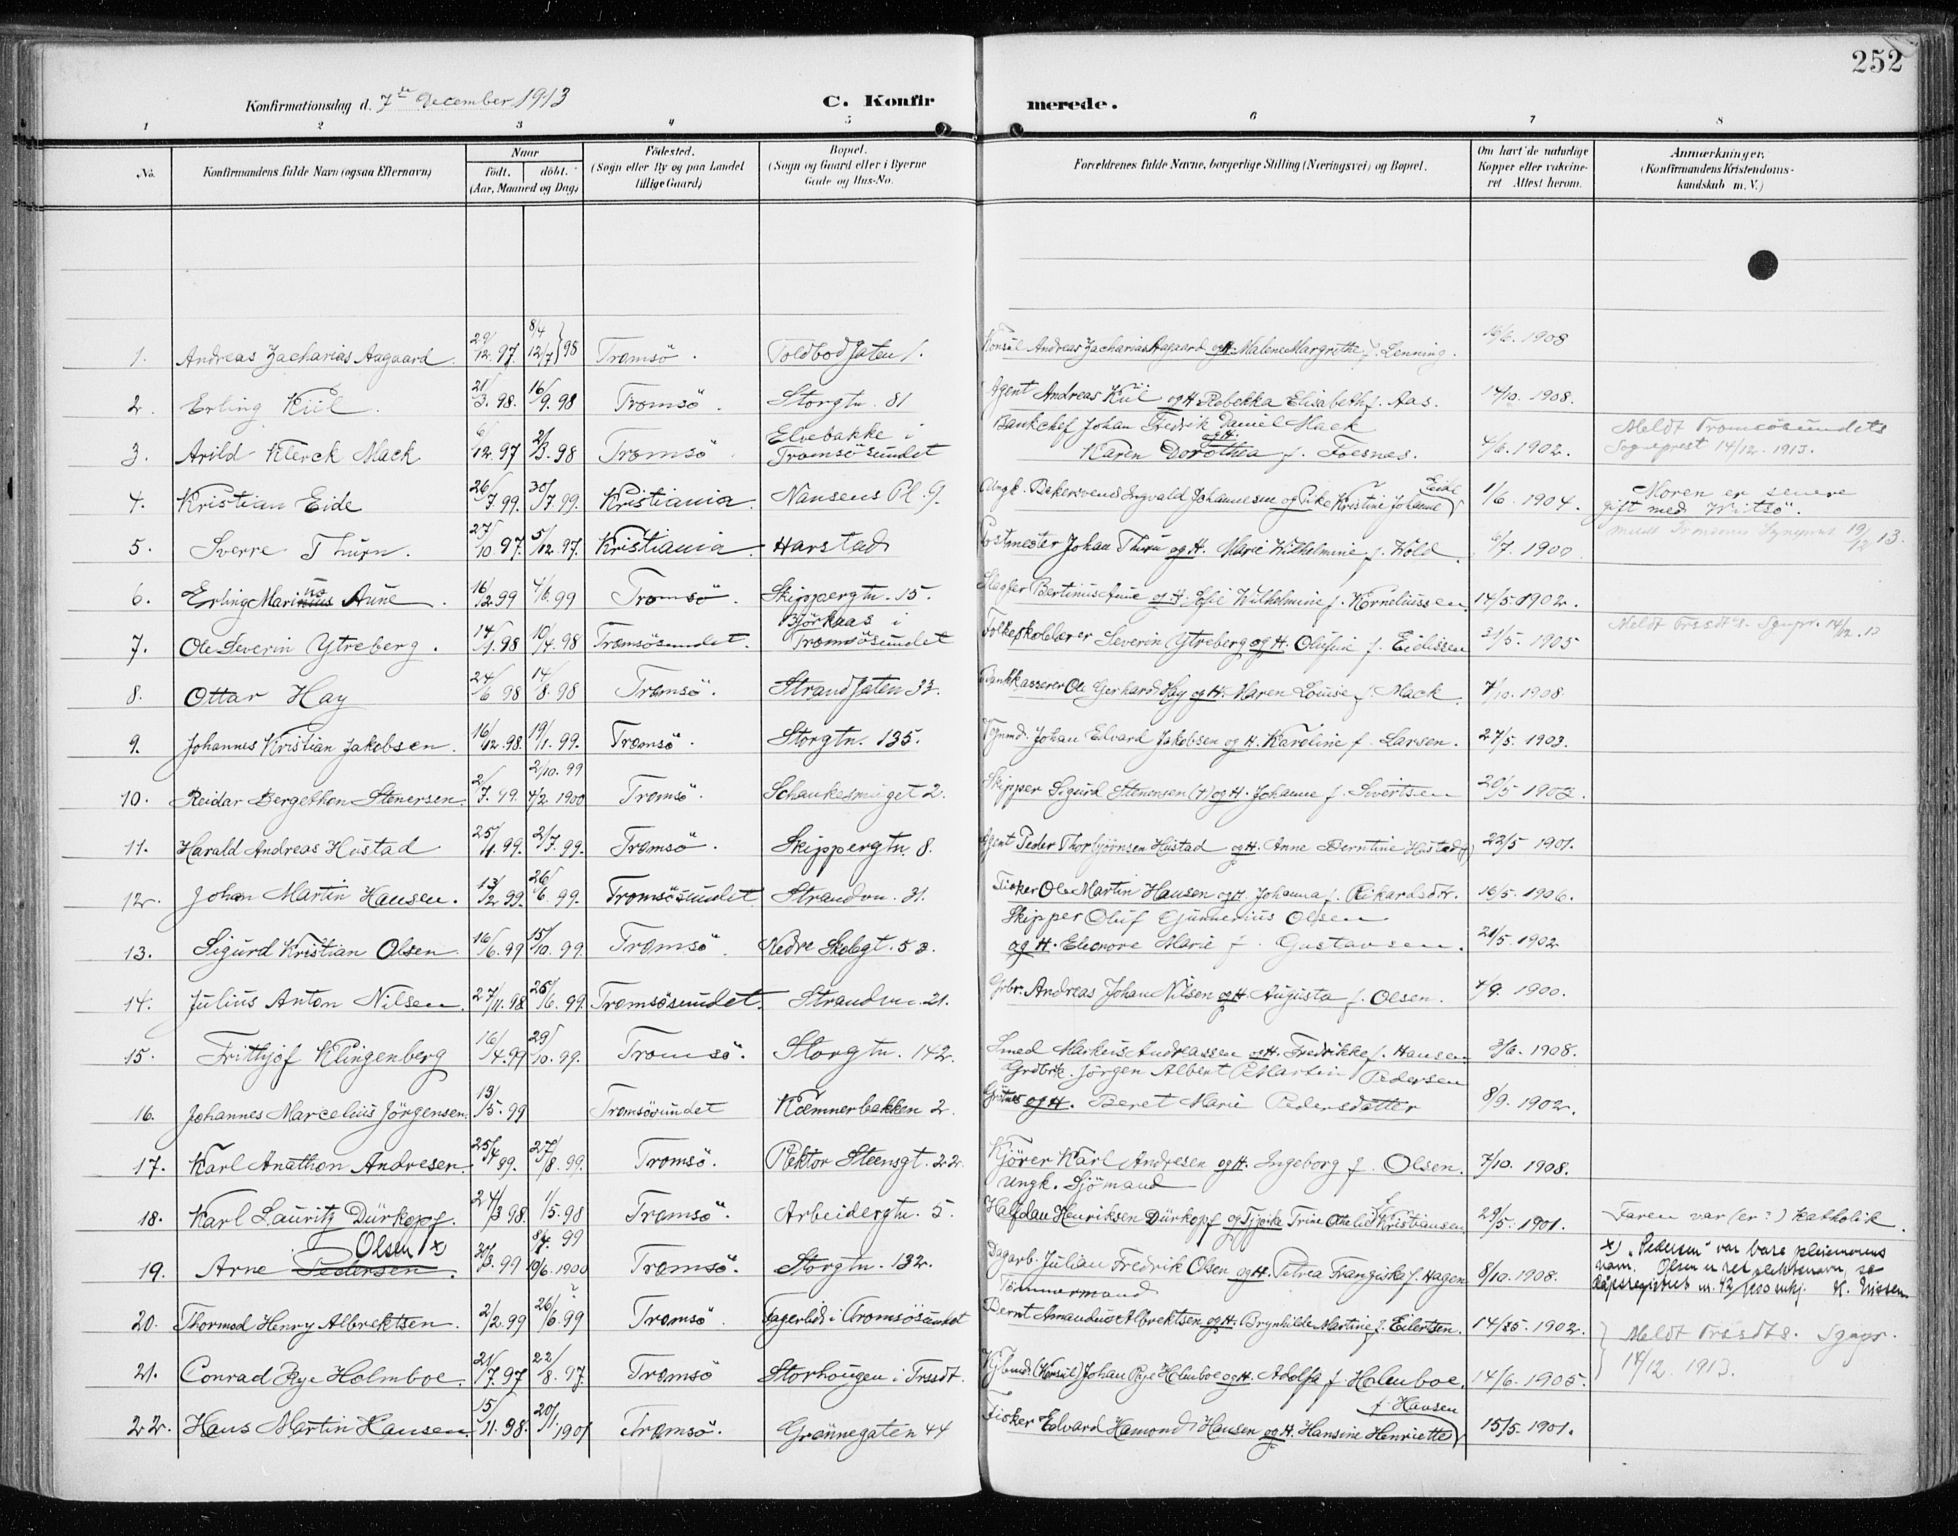 252
Konfirmationsdag d. 7de December 1913
C. Konfirmerede.
1 2 3 4 5 6 7 8
No. Konfirmandens fulde Navn (ogsaa Efternavn) Naar født. døbt. (Aar, Maaned og Dag) Fødested. (Sogn eller By og paa Landet tillige Gaard) Bopæl. (Sogn og Gaard eller i Byerne Gade og Hus-No. Forældrenes fulde Navne, borgerlige Stilling (Næringsvei) og Bopæl. Om havt de naturlige Kopper eller vaccineret Attest herom. Anmærkninger. (Konfirmandens Kristendomskundskab m. V.)
1. Andreas Zacharias Aagaard. 29/12.97 8/4 12/7 } 98 Tromsö. Toldbodgaten 1. Konsul Andreas Zacharias Aagaard og H. Malene Margrethe f. Lenning. 16/6. 1908
2. Erling Kiil. 21/3.98. 16/9.98 Tromsö. Storgtn. 81 Agent Andreas Kiil og H. Rebekka Elisabeth f. Aas. 14/10. 1908.
3. Arild Klerck Mack 6/12.97 2/3.98 Tromsö. Elvebakke i Tromsösundet Bankchef Johan Fredrik Daniel Mack og H. Karen Dorothea f. Foesnes. 4/6. 1902. Meldt Tromsösundets Sogneprest 14/12. 1913.
4. Kristian Eide 26/7.99. 30/7.99. Kristiania. Nansens Pl. 9. Ungk. Bekersvend Ingvald Johannesen og Pike Kristine Johanne Eide 1/6. 1904. Moren er senere gift med
5. Sverre Thurn. 27/10.97. 5/12.97. Kristiania. Harstad Postmester Johan Thurn og H. Marie Wilhelmine f. Wold 6/7. 1900 19/12 13.
6. Erling Marinius us Aune. 16/2.99 4/6.99 Tromsö. Skippergtn. 15. Bertinus Aune og H. Sofie Wilhelmine f. Korneliussen. 14/5. 1902.
7. Ole Severin Ytreberg. 14/1.98 10/4.98 Tromsösundet. Björkaas i Tromsösundet Folkeskolelærer Severin Ytreberg og H. Olufine f. Eidissen 31/5. 1905 Meldt Trssdts. Sgnpr. 14/12. 13
8. Ottar Hay 24/6 98 14/8.98 Tromsö. Strandgaten 33. Bankkasserer Ole Gerhard Hay og H. Maren Louise f. Mack. 7/10. 1908.
9. Johannes Kristian Jakobsen. 16/12.98. 19/1.99. Tromsö. Storgtn. 135. Johan Edvard Jakobsen og H. Karoline f. Larsen. 27/5. 1903.
10. Reidar Bergethon Stenersen. 2/7.99. 2/10.99 4/2.1900 Tromsö. 2. Skipper Sigurd Stenersen (†) og H. Johanne f. Sivertsen 20/5. 1902.
11. Harald Andreas Hustad 25/4.99. 2/7.99. Tromsö. Skippergtn. 8. Agent Peder Thorbjörnsen Hustad og H. Anne Berntine Hustad 22/5 1901.
12. Johan Martin Hansen. 13/2 99. 26/6.99. Tromsösundet. Strandvn. 31. Fisker Ole Martin Hansen og H. Johanna f. Rikardsdtr. 16/5. 1906.
13. Sigurd Kristian Olsen. 16/6.99 15/10.99. Tromsö. Nedre Skolegt. 53. Skipper Oluf Gunnerius Olsen og H. Eleonore Marie f. Gustavsen. 21/5. 1902
14. Julius Anton Nilsen 27/11.98. 26/6.99. Tromsösundet. Strandvn. 21. Grbr. Andreas Johan Nilsen og H. Augusta f. Olsen. 4/9. 1900.
15. Frithjof Klingenberg 16/4.99 29/10.99. Tromsö. Storgtn. 142. Smed Markus Andreassen og H. Fredrikke f. Hansen 3/6. 1908.
16. Johannes Marcelius Jörgensen. 13/5.99 Tromsösundet Kæmnerbakken 2. Grdbrk. Jörgen Albert Martin Pedersen og H. Beret Marie Pedersdatter 8/9. 1902.
17. Karl Anathon Andresen. 25/4 99. 27/8.99. Tromsö. Rektor Steensgt. 22. Kjörer Karl Andresen og H. Ingeborg f. Olsen. 7/10. 1908.
18. Karl Lauritz Dürkopf. 24/3 98. 1/5.98 Tromsö. Arbeidergtn. 5. Ungk. Sjömand Halfdan Henriksen Dürkopf og Trine Kristiansen 29/5. 1901. Faren var (er?) Katholik.
19. Arne Pedersen. Olsen x) 30/3.99 8/7. 99 10/6 1900 Tromsö. Storgtn. 132. Dagarb. Julian Fredrik Olsen og H. Petrea Franziska f. Hagen 8/10. 1908. x) "Pedersen" var bare pleiemorens navn. Olsen er ret slektsnavn, se daapsregistret H. Nissen
20. Thormod Henry Albrektsen. 2/2.99 26/6.99 ? Tromsö. Fagerlid i Tromsösundet Tömmermand Bernt Amandus Albrektsen og H. Brynhilde Martine f. Eilertsen. 14/5. 1902. } Meldt Trssdts. Sgnpr. 14/12. 1913.
21. Conrad Rye Holmboe. 21/7.97 22/8.97 Tromsö Storhougen i Trssdt. Kjbmd. (Konsul) Johan Rye Holmboe og H. Adolfa f. Holmboe. 14/6. 1905.
22. Hans Martin Hansen 15/11.98. 20/1.1901 Tromsö. Grönnegaten 44 Fisker Edvard Hamond Hansen og H. Hansine Henriette f. Hansen 15/5. 1901.